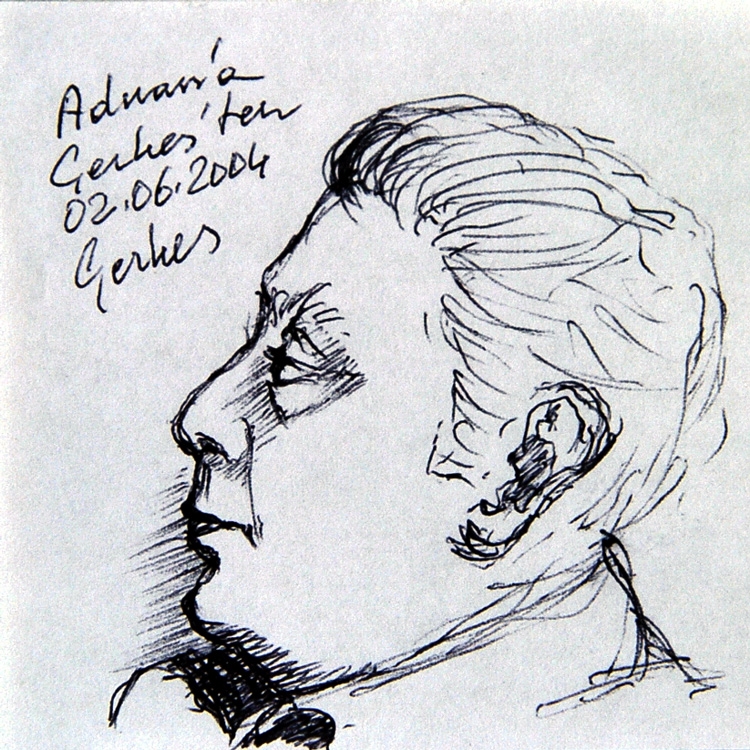 Adnan'a
Gerkes'ten
02.06.2004
Gerkes